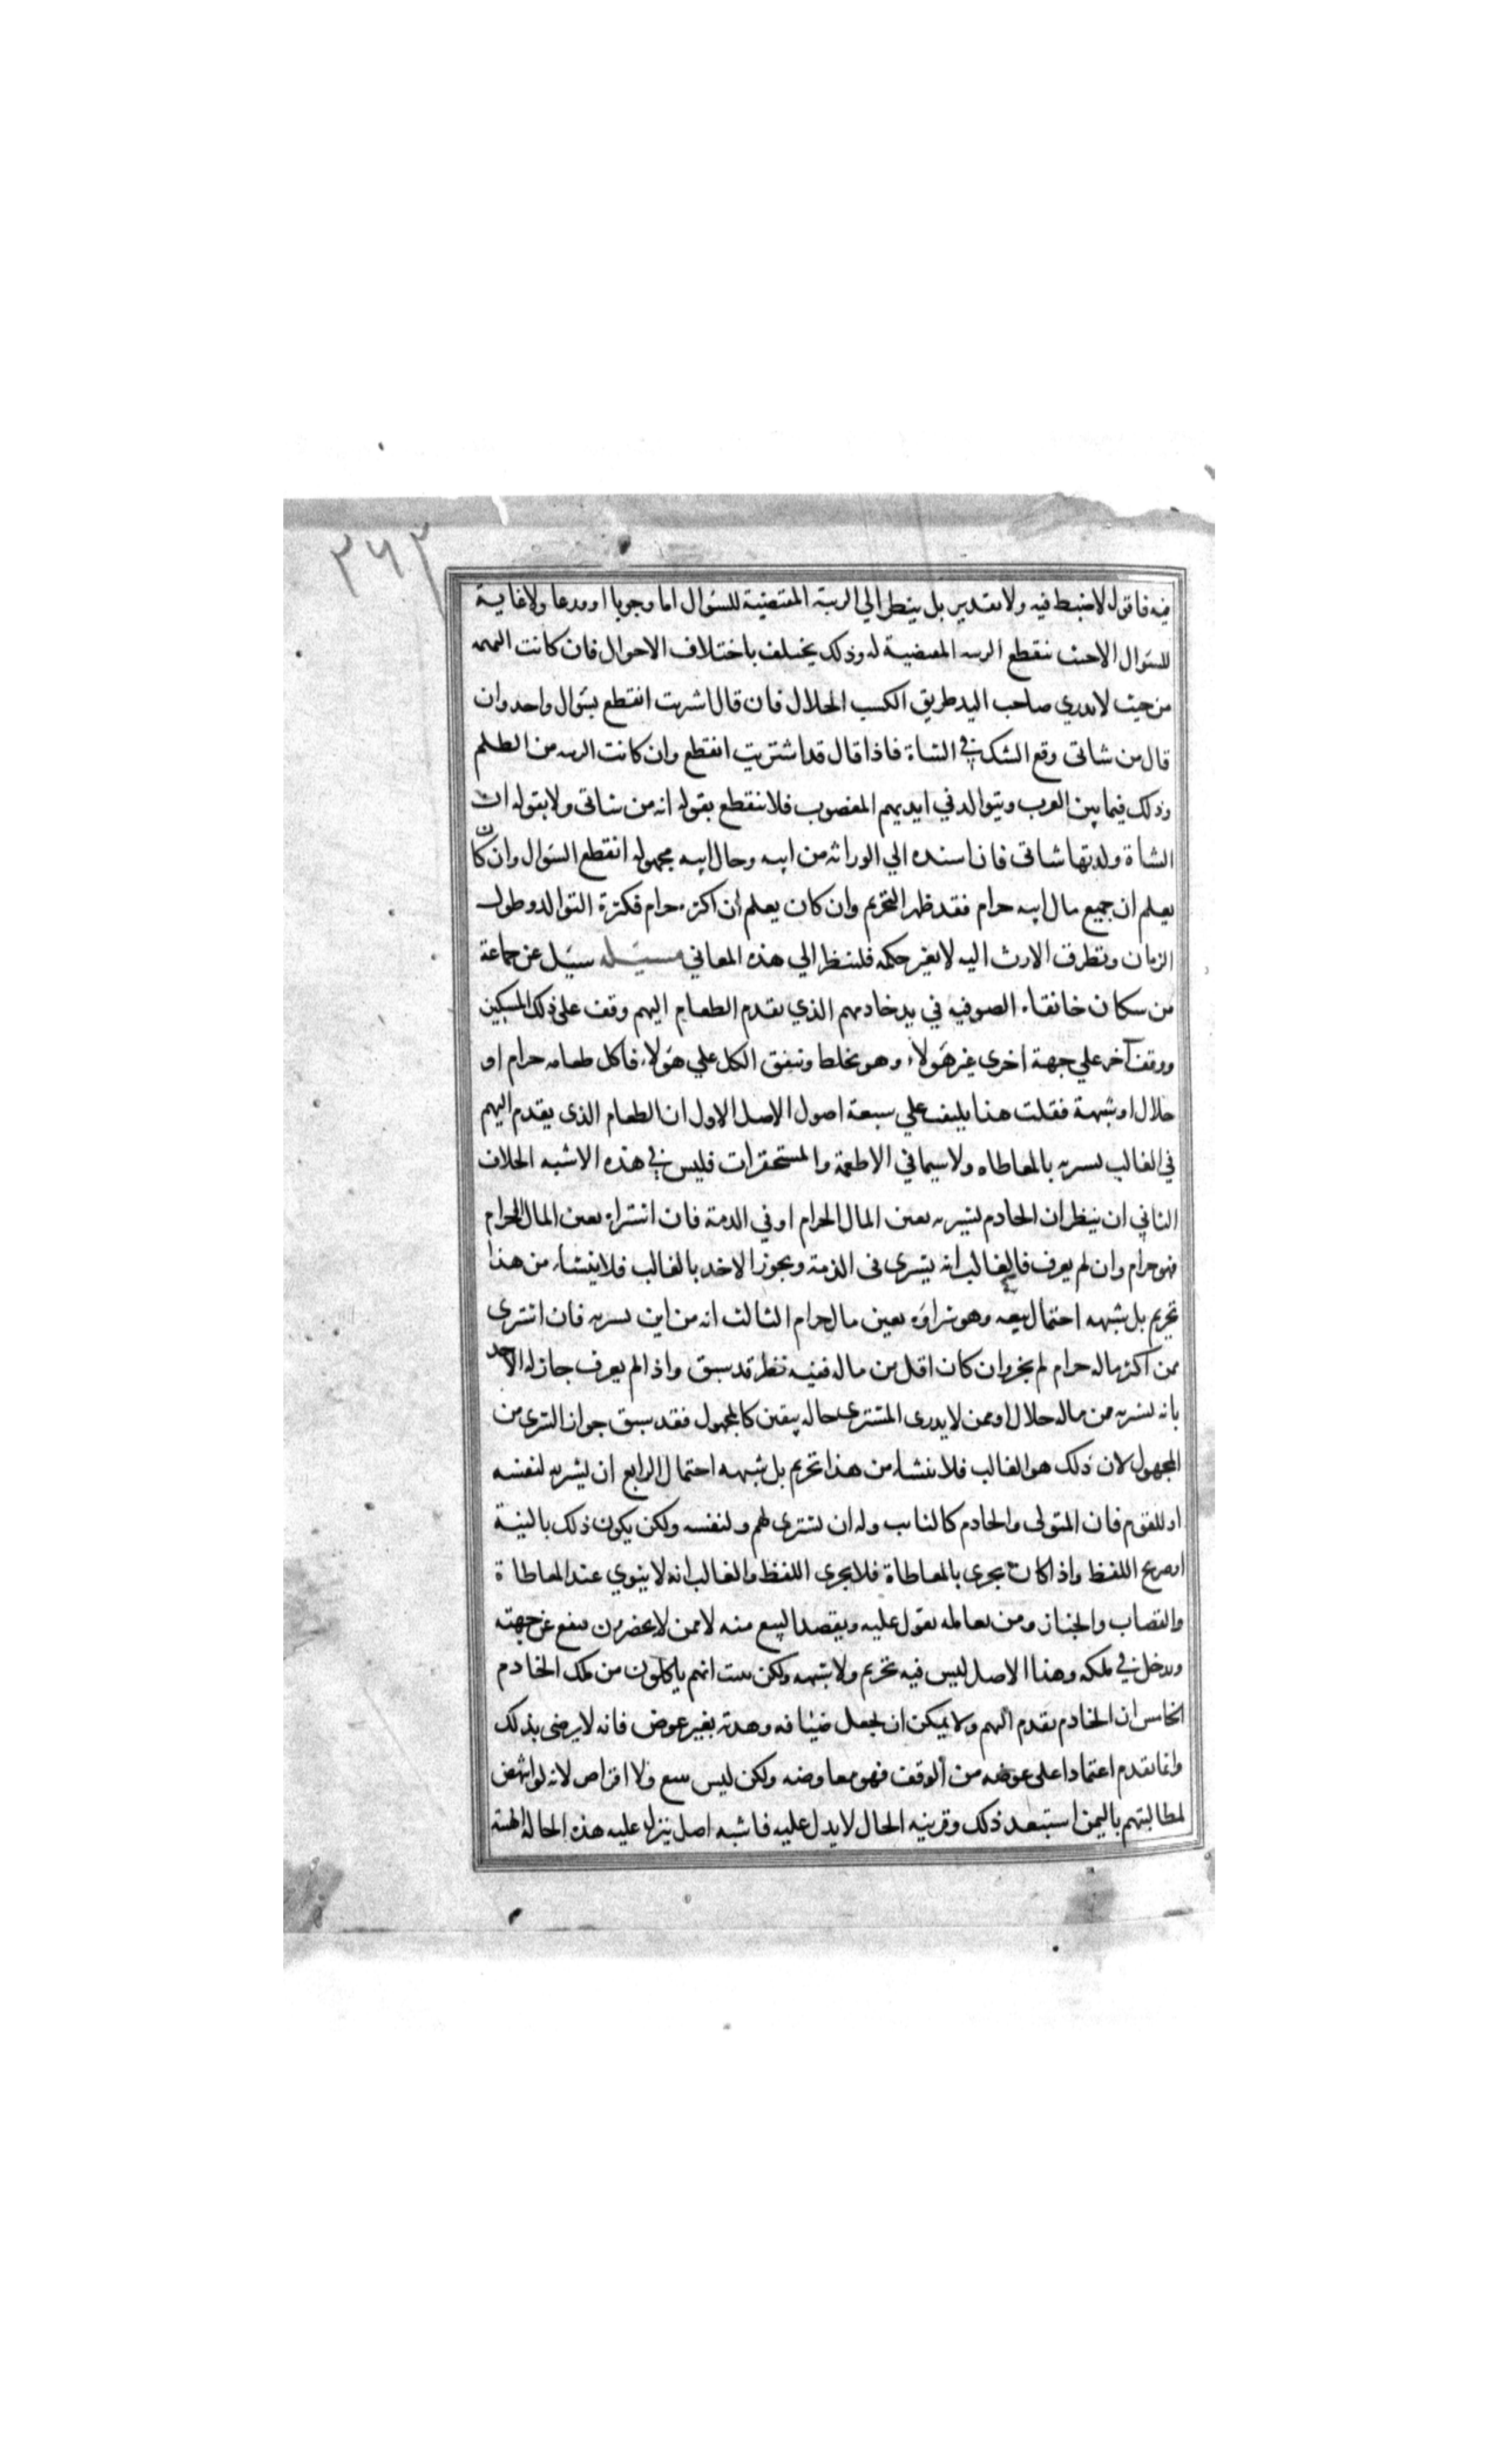 ٣٦٣
فيه فاقول لا ضبط فيه ولا تقدير بل ينظر الي الريبة المقتضية للسؤال اما وجوبا او ورعا ولا غاية
للسؤال الا حيث تنقطع الريبه المقتضية له وذلك يختلف باختلاف الاحوال فان كانت التهمه
من حيث لا يدري صاحب اليد طريق الكسب الحلال فان قال اشريت انقطع بسؤال واحد وان
قال من شاتى وقع الشك في الشاة فاذا قال قد اشتريت انقطع وان كانت الريبه من الظلم
وذلك فيما بين العرب ويتوالد في ايديهم المغصوب فلا ينقطع بقوله انه من شاتى ولا بقوله ان
الشاة ولدتها شاتى فان اسنده الي الوراثه من ابيه وحال ابيه مجهوله انقطع السؤال وان كان
يعلم ان جميع مال ابيه حرام فقد ظهر التحريم وان كان يعلم ان اكثره حرام فكثرة التوالد وطول
الزمان وتطرق الارث اليه لا يغير حكمه فلينظر الي هذه المعاني مسئله سئل عن جماعة
من سكان خانقاه الصوفيه في يد خادمهم الذي يقدم الطعام اليهم وقف على ذلك المسكين
ووقف آخر علي جهة اخرى غير هؤلاء وهو يخلط وينفق الكل علي هؤلاء فاكل طعامه حرام او
حلال او شبهة فقلت هذا يلتفت علي سبعة اصول الاصل الاول ان الطعام الذى يقدم اليهم
في الغالب يشريه بالمعاطاه ولا سيما في الاطعمة والمستحقرات فليس في هذه الا شبه الخلاف
الثاني ان ينظر ان الخادم يشريه بعين المال الحرام او في الذمة فان اشتراه بعين المال الحرام
فهو حرام وان لم يعرف فالغالب انه يشرى فى الذمة ويجوز الاخذ بالغالب فلا ينشاء من هذا
تحريم بل شبهه احتمال بعيد وهو شراؤه بعين مال حرام الثالث انه من اين يشريه فان اشترى
ممن اكثر ماله حرام لم يجز وان كان اقل من ماله ففيه نظر قد سبق واذا لم يعرف جاز له الاخذ
بانه يشريه ممن ماله حلال او ممن لا يدرى المشترى حاله بيقين كالمجهول فقد سبق جواز الشرى من
المجهول لان ذلك هو الغالب فلا ينشاء من هذا تحريم بل شبهه احتمال الرابع ان يشريه لنفسه
او للقوم فان المتولى والخادم كالنايب وله ان يشترى لهم ولنفسه ولكن يكون ذلك بالنية
او صريح اللفظ واذا كان يجرى بالمعاطاة فلا يجرى اللفظ والغالب انه لا ينوي عند المعاطاة
والقصاب والخباز ومن يعامله يقول عليه ويقصد البيع منه لا ممن لا يحضرون فيقع عن جهته
ويدخل في ملكه وهذا الاصل ليس فيه تحريم ولا شبهه ولكن يثبت انهم ياكلون من ملك الخادم
الخامس ان الخادم يقدم اليهم ولا يمكن ان يجعل ضيافه وهدية بغير عوض فانه لا يرضى بذلك
وانما يقدم اعتمادا على عوضه من الوقف فهو معاوضه ولكن ليس ببيع ولا اقراض لانه لو انتهض
لمطالبتهم باليمن استبعد ذلك وقرينه الحال لا يدل عليه فاشبه اصل ينزل عليه هذه الحاله الهبة